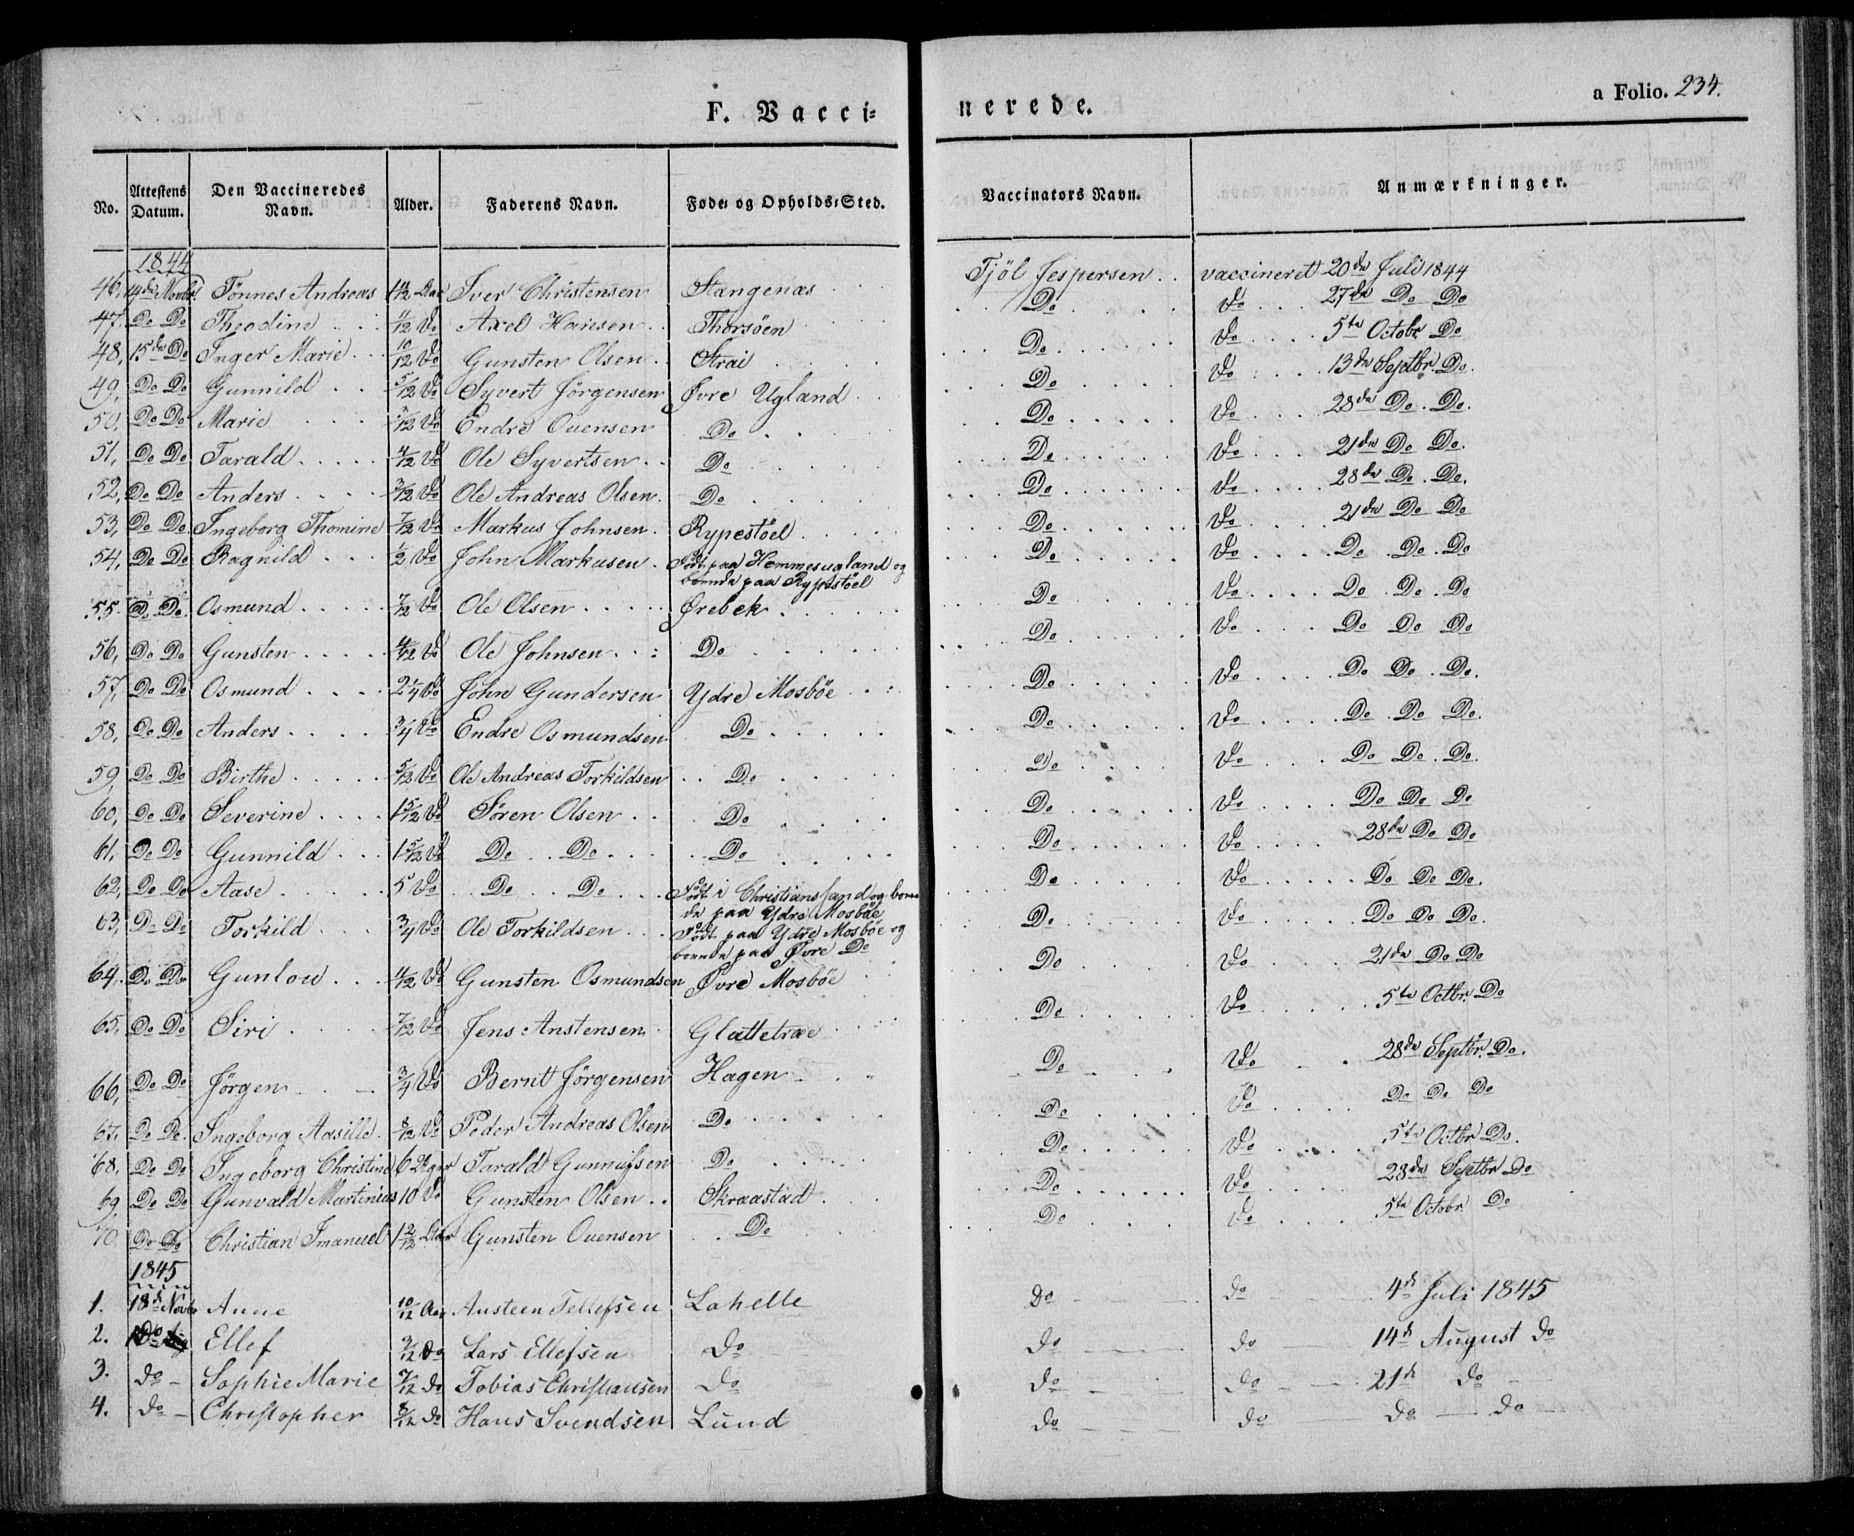 F. Vacci=nerede.
a Folio. 234.
No. | Attestens Datum. | Den Vaccineredes Navn. | Alder. | Faderens Navn. | Føde- og Opholds-Sted. | Vaccinators Navn. | Anmærkninger.
1844
46. | 14de Novbr | Tønnes Andreas | | Iver Christensen | Stangenæs | Tjöl Jespersen | vaccineret 20de Juli 1844
47. | Do Do | Theodine | 11/12 Do | Axel Hansen | Thorsöen | Do | Do 27de Do Do
48. | 15de Do | Inger Marie | 10/12 Do | Gunsten Olsen | Strai | Do | Do 5te Octobr Do
49. | Do Do | Gunnild | 5/12 Do | Syvert Jörgensen | Øvre Ugland | Do | Do 13de Septbr. Do.
50. | Do Do | Marie | /12 Do | Endre Ouensen | Do | Do | Do 28de Do. Do.
51. | Do Do | Tarald | 4/12 Do | Ole Syvertsen | Do | Do | Do 21de Do Do.
52. | Do Do | Anders | 3/12 Do | Ole Andreas Olsen | Do | Do | Do 28de Do. Do.
53. | Do Do | Ingeborg Thomine | 7/12 Do | Markus Johnsen | Rypestöel | Do | Do 21de Do Do
54. | Do Do | Ragnild | 1/2 Do | John Markusen | Födt paa Hemmesugland og
boende paa Rypestöel | Do | Do Do. Do. Do
55. | Do Do | Osmund | 7/12 Do | Ole Olsen | Ørebek | Do | Do Do. Do. Do
56. | Do Do | Gunsten | 4/12 Do | Ole Johnsen | Do | Do | Do Do Do Do
57. | Do Do | Osmund | 2 1/4 Do | John Gundersen | Ydre Mosböe | Do | Do Do Do. Do.
58. | Do Do | Anders | 3/4 Do | Endre Osmundsen | Do | Do | Do Do. Do Do.
59. | Do Do | Birthe | 5/12 Do | Ole Andreas Torkildsen | Do | Do | Do Do Do. Do.
60. | Do Do | Severine | 1 5/12 Do | Sören Olsen | Do | Do | Do Do Do Do
61. | Do Do | Gunnild | 1 5/12 Do | Do Do | Do | Do | Do 28de Do Do
62. | Do Do | Aase | 5 Do | Do Do | Födt i Christianssand og boen
de paa Ydre Mosböe | Do | Do Do Do Do.
63. | Do Do | Torkild | 3/4 Do | Ole Torkildsen | Födt paa Ydre Mosböe og
boende paa Øvre Do | Do | Do Do Do Do.
64. | Do Do | Gunlou | 4/12 Do | Gunsten Osmundsen | Øvre Mosböe | Do | Do 21de Do Do
65. | Do Do | Siri | 7/12 Do | Jens Anstensen | Glattetræe | Do | Do 5te Octbr. Do
66. | Do Do | Jörgen | 3/4 Do | Bernt Jörgensen | Hagen | Do | Do 28de Septbr. Do.
67. | Do Do | Ingeborg Aasille | 8/12 Do | Peder Andreas Olsen | Do | Do | Do Do Do Do
68. | Do Do | Ingeborg Christine | 6 Uger | Tarald Gunnufsen | Do | Do | Do 5te Octbr Do.
69. | Do Do | Gunvald Martinius | 10 Do | Gunsten Olsen | Skraastad | Do | Do 28de Septbr Do
70. | Do Do | Christian Imanuel | 1 2/12 Aar | Gunsten Ouensen | Do | Do | Do 5te Octobr Do
1845
1. | 18d Novbr | Anne | 10/12 Aar | Austeen Tellefsen | Lahelle | do | do 4d Juli 1845
2. | | Ellef | 9/12 do | Lars Ellefsen | do | do | do 14d August do
3. | do | Sophie Marie | 7/12 do | Tobias Christiansen | do | do | do 21d do
4. | do | Christopher | 8/12 do | Hans Svendsen | Lund | do | do do do